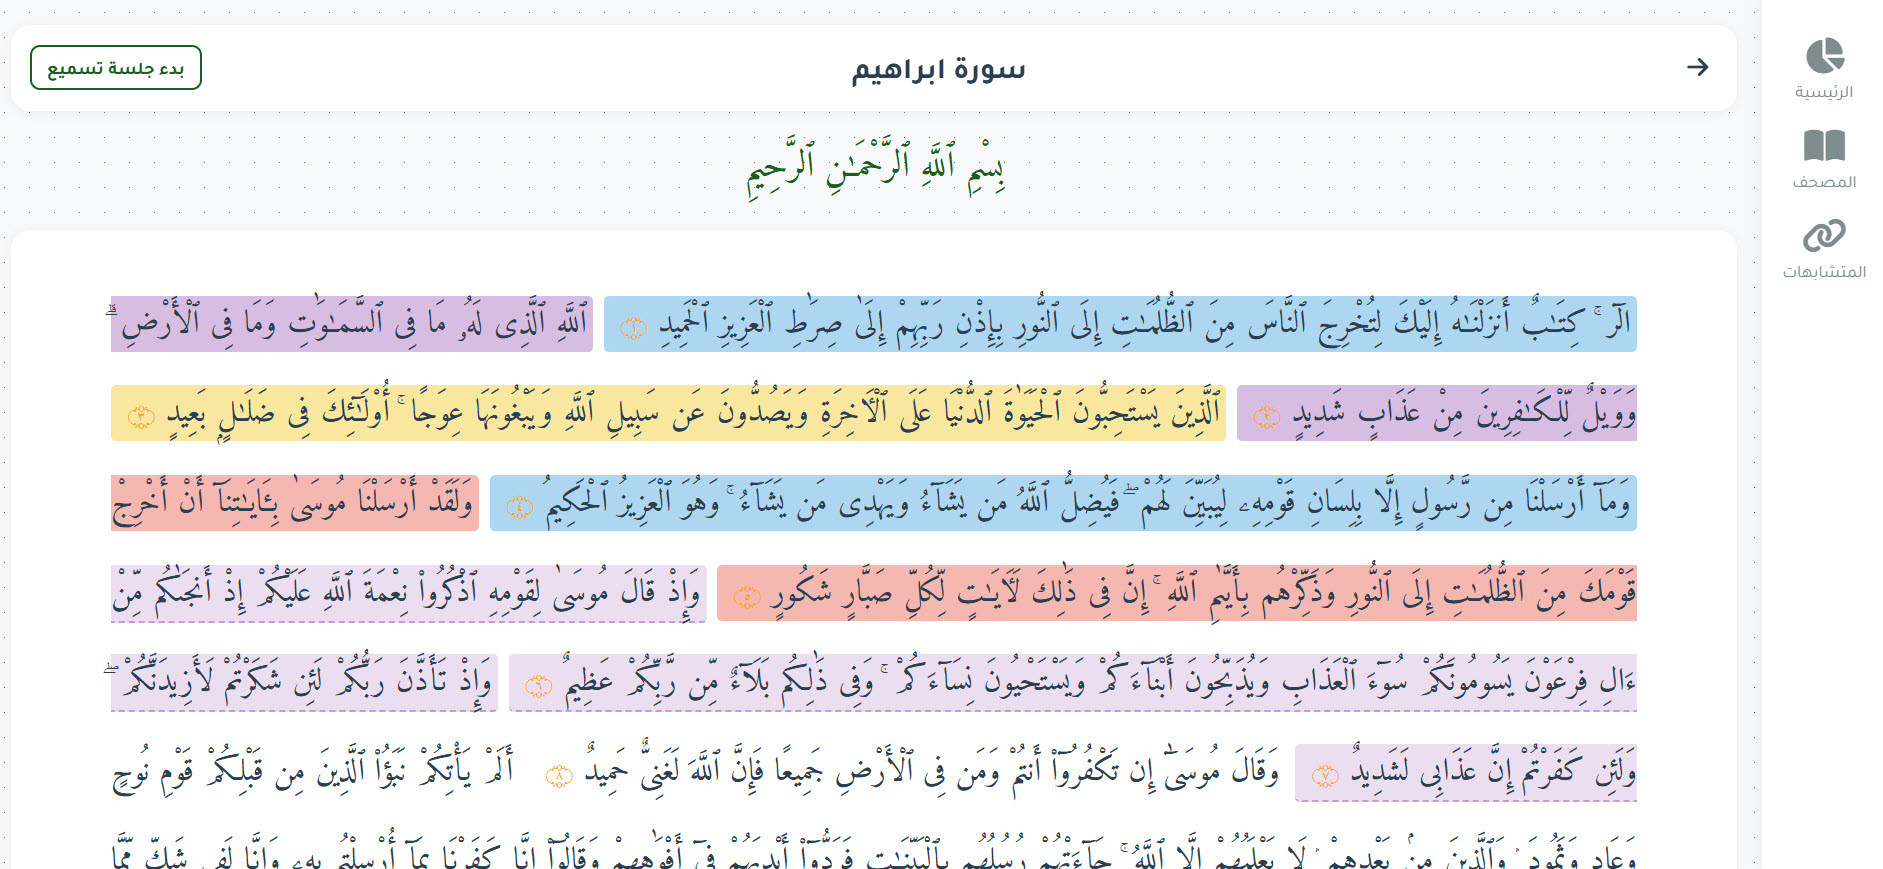 سورة ابراهيم
بدء جلسة تسميع
الرئيسية
المصحف
المتشابهات
بِسْمِ ٱللَّهِ ٱلرَّحْمَـٰنِ ٱلرَّحِيمِ
الٓر ۚ كِتَـٰبٌ أَنزَلْنَـٰهُ إِلَيْكَ لِتُخْرِجَ ٱلنَّاسَ مِنَ ٱلظُّلُمَـٰتِ إِلَى ٱلنُّورِ بِإِذْنِ رَبِّهِمْ إِلَىٰ صِرَٰطِ ٱلْعَزِيزِ ٱلْحَمِيدِ ١ ٱللَّهِ ٱلَّذِى لَهُۥ مَا فِى ٱلسَّمَـٰوَٰتِ وَمَا فِى ٱلْأَرْضِ ۗ
وَوَيْلٌ لِّلْكَـٰفِرِينَ مِنْ عَذَابٍ شَدِيدٍ ٢ ٱلَّذِينَ يَسْتَحِبُّونَ ٱلْحَيَوٰةَ ٱلدُّنْيَا عَلَى ٱلْـَٔاخِرَةِ وَيَصُدُّونَ عَن سَبِيلِ ٱللَّهِ وَيَبْغُونَهَا عِوَجًا ۚ أُو۟لَـٰٓئِكَ فِى ضَلَـٰلٍۭ بَعِيدٍ ٣
وَمَآ أَرْسَلْنَا مِن رَّسُولٍ إِلَّا بِلِسَانِ قَوْمِهِۦ لِيُبَيِّنَ لَهُمْ ۖ فَيُضِلُّ ٱللَّهُ مَن يَشَآءُ وَيَهْدِى مَن يَشَآءُ ۚ وَهُوَ ٱلْعَزِيزُ ٱلْحَكِيمُ ٤ وَلَقَدْ أَرْسَلْنَا مُوسَىٰ بِـَٔايَـٰتِنَآ أَنْ أَخْرِجْ
قَوْمَكَ مِنَ ٱلظُّلُمَـٰتِ إِلَى ٱلنُّورِ وَذَكِّرْهُم بِأَيَّىٰمِ ٱللَّهِ ۚ إِنَّ فِى ذَٰلِكَ لَـَٔايَـٰتٍ لِّكُلِّ صَبَّارٍ شَكُورٍ ٥ وَإِذْ قَالَ مُوسَىٰ لِقَوْمِهِ ٱذْكُرُوا۟ نِعْمَةَ ٱللَّهِ عَلَيْكُمْ إِذْ أَنجَىٰكُم مِّنْ
ءَالِ فِرْعَوْنَ يَسُومُونَكُمْ سُوٓءَ ٱلْعَذَابِ وَيُذَبِّحُونَ أَبْنَآءَكُمْ وَيَسْتَحْيُونَ نِسَآءَكُمْ ۚ وَفِى ذَٰلِكُم بَلَآءٌ مِّن رَّبِّكُمْ عَظِيمٌ ٦ وَإِذْ تَأَذَّنَ رَبُّكُمْ لَئِن شَكَرْتُمْ لَأَزِيدَنَّكُمْ ۖ
وَلَئِن كَفَرْتُمْ إِنَّ عَذَابِى لَشَدِيدٌ ٧ وَقَالَ مُوسَىٰٓ إِن تَكْفُرُوٓا۟ أَنتُمْ وَمَن فِى ٱلْأَرْضِ جَمِيعًا فَإِنَّ ٱللَّهَ لَغَنِىٌّ حَمِيدٌ ٨ أَلَمْ يَأْتِكُمْ نَبَؤُا۟ ٱلَّذِينَ مِن قَبْلِكُمْ قَوْمِ نُوحٍ
وَعَادٍ وَثَمُودَ ۛ وَٱلَّذِينَ مِنۢ بَعْدِهِمْ ۛ لَا يَعْلَمُهُمْ إِلَّا ٱللَّهُ ۚ جَآءَتْهُمْ رُسُلُهُم بِٱلْبَيِّنَـٰتِ فَرَدُّوٓا۟ أَيْدِيَهُمْ فِىٓ أَفْوَٰهِهِمْ وَقَالُوٓا۟ إِنَّا كَفَرْنَا بِمَآ أُرْسِلْتُم بِهِۦ وَإِنَّا لَفِى شَكٍّ مِّمَّا